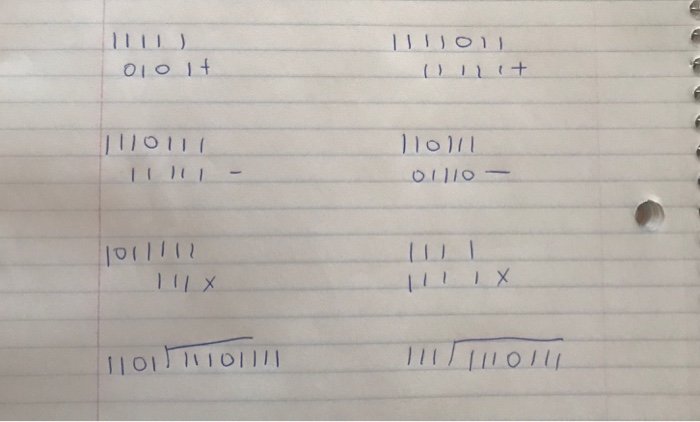 11111 1111011
0101+ 11111+
1110111 110111
11111 - 01110 -
1011111 1111
111 x 1111 x
1101)11101111 111)1110111